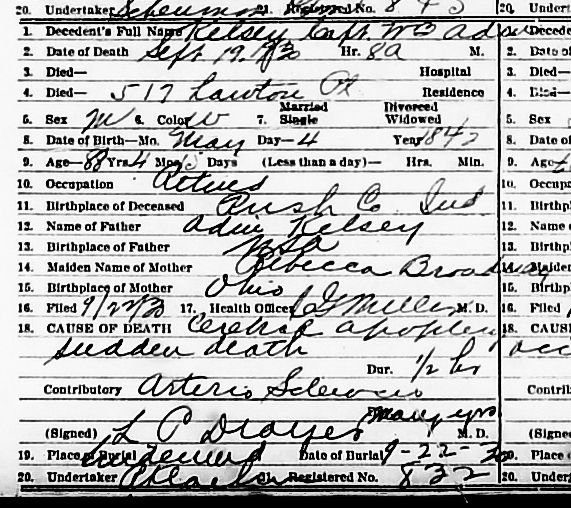 20. Undertaker 21. Registered No. 845 20. Undert
1. Decedent's Full Name Kelsey Capt. WB Decede
2. Date of Death Sept 19. 1930 Hr. 8 a M. 2. Date of
3. Died— Hospital 3. Died—
4. Died— 517 Lawton Pl Residence 4. Died—
Married Divorced
5. Sex M 6. Color W 7. Single Widowed 5. Sex
8. Date of Birth—Mo. May Day—4 Year 1842 8. Date of
9. Age—88 Yrs. 4 Mos. 15 Days (Less than a day)— Hrs. Min. 9. Age
10. Occupation Retired 10. Occupa
11. Birthplace of Deceased Rush Co Ind 11. Birthpl
12. Name of Father Kelsey 12. Name o
13. Birthplace of Father USA 13. Birthpl
14. Maiden Name of Mother Rebecca Broadway Maiden
15. Birthplace of Mother Ohio 15. Birthpl
16. Filed 9/22/30 17. Health Officer Miller M. D. 16. Filed
18. CAUSE OF DEATH Cerebral apoplexy 18. CAUSE
sudden death occ
Dur. 1/2 hr
Contributory Arterio Sclerosis Contrib
many yrs
(Signed) L P M. D. (Signed)
19. Place of Burial Lindenwood Date of Burial 9-22-30 Place o
20. Undertaker 21. Registered No. 832 20. Undert